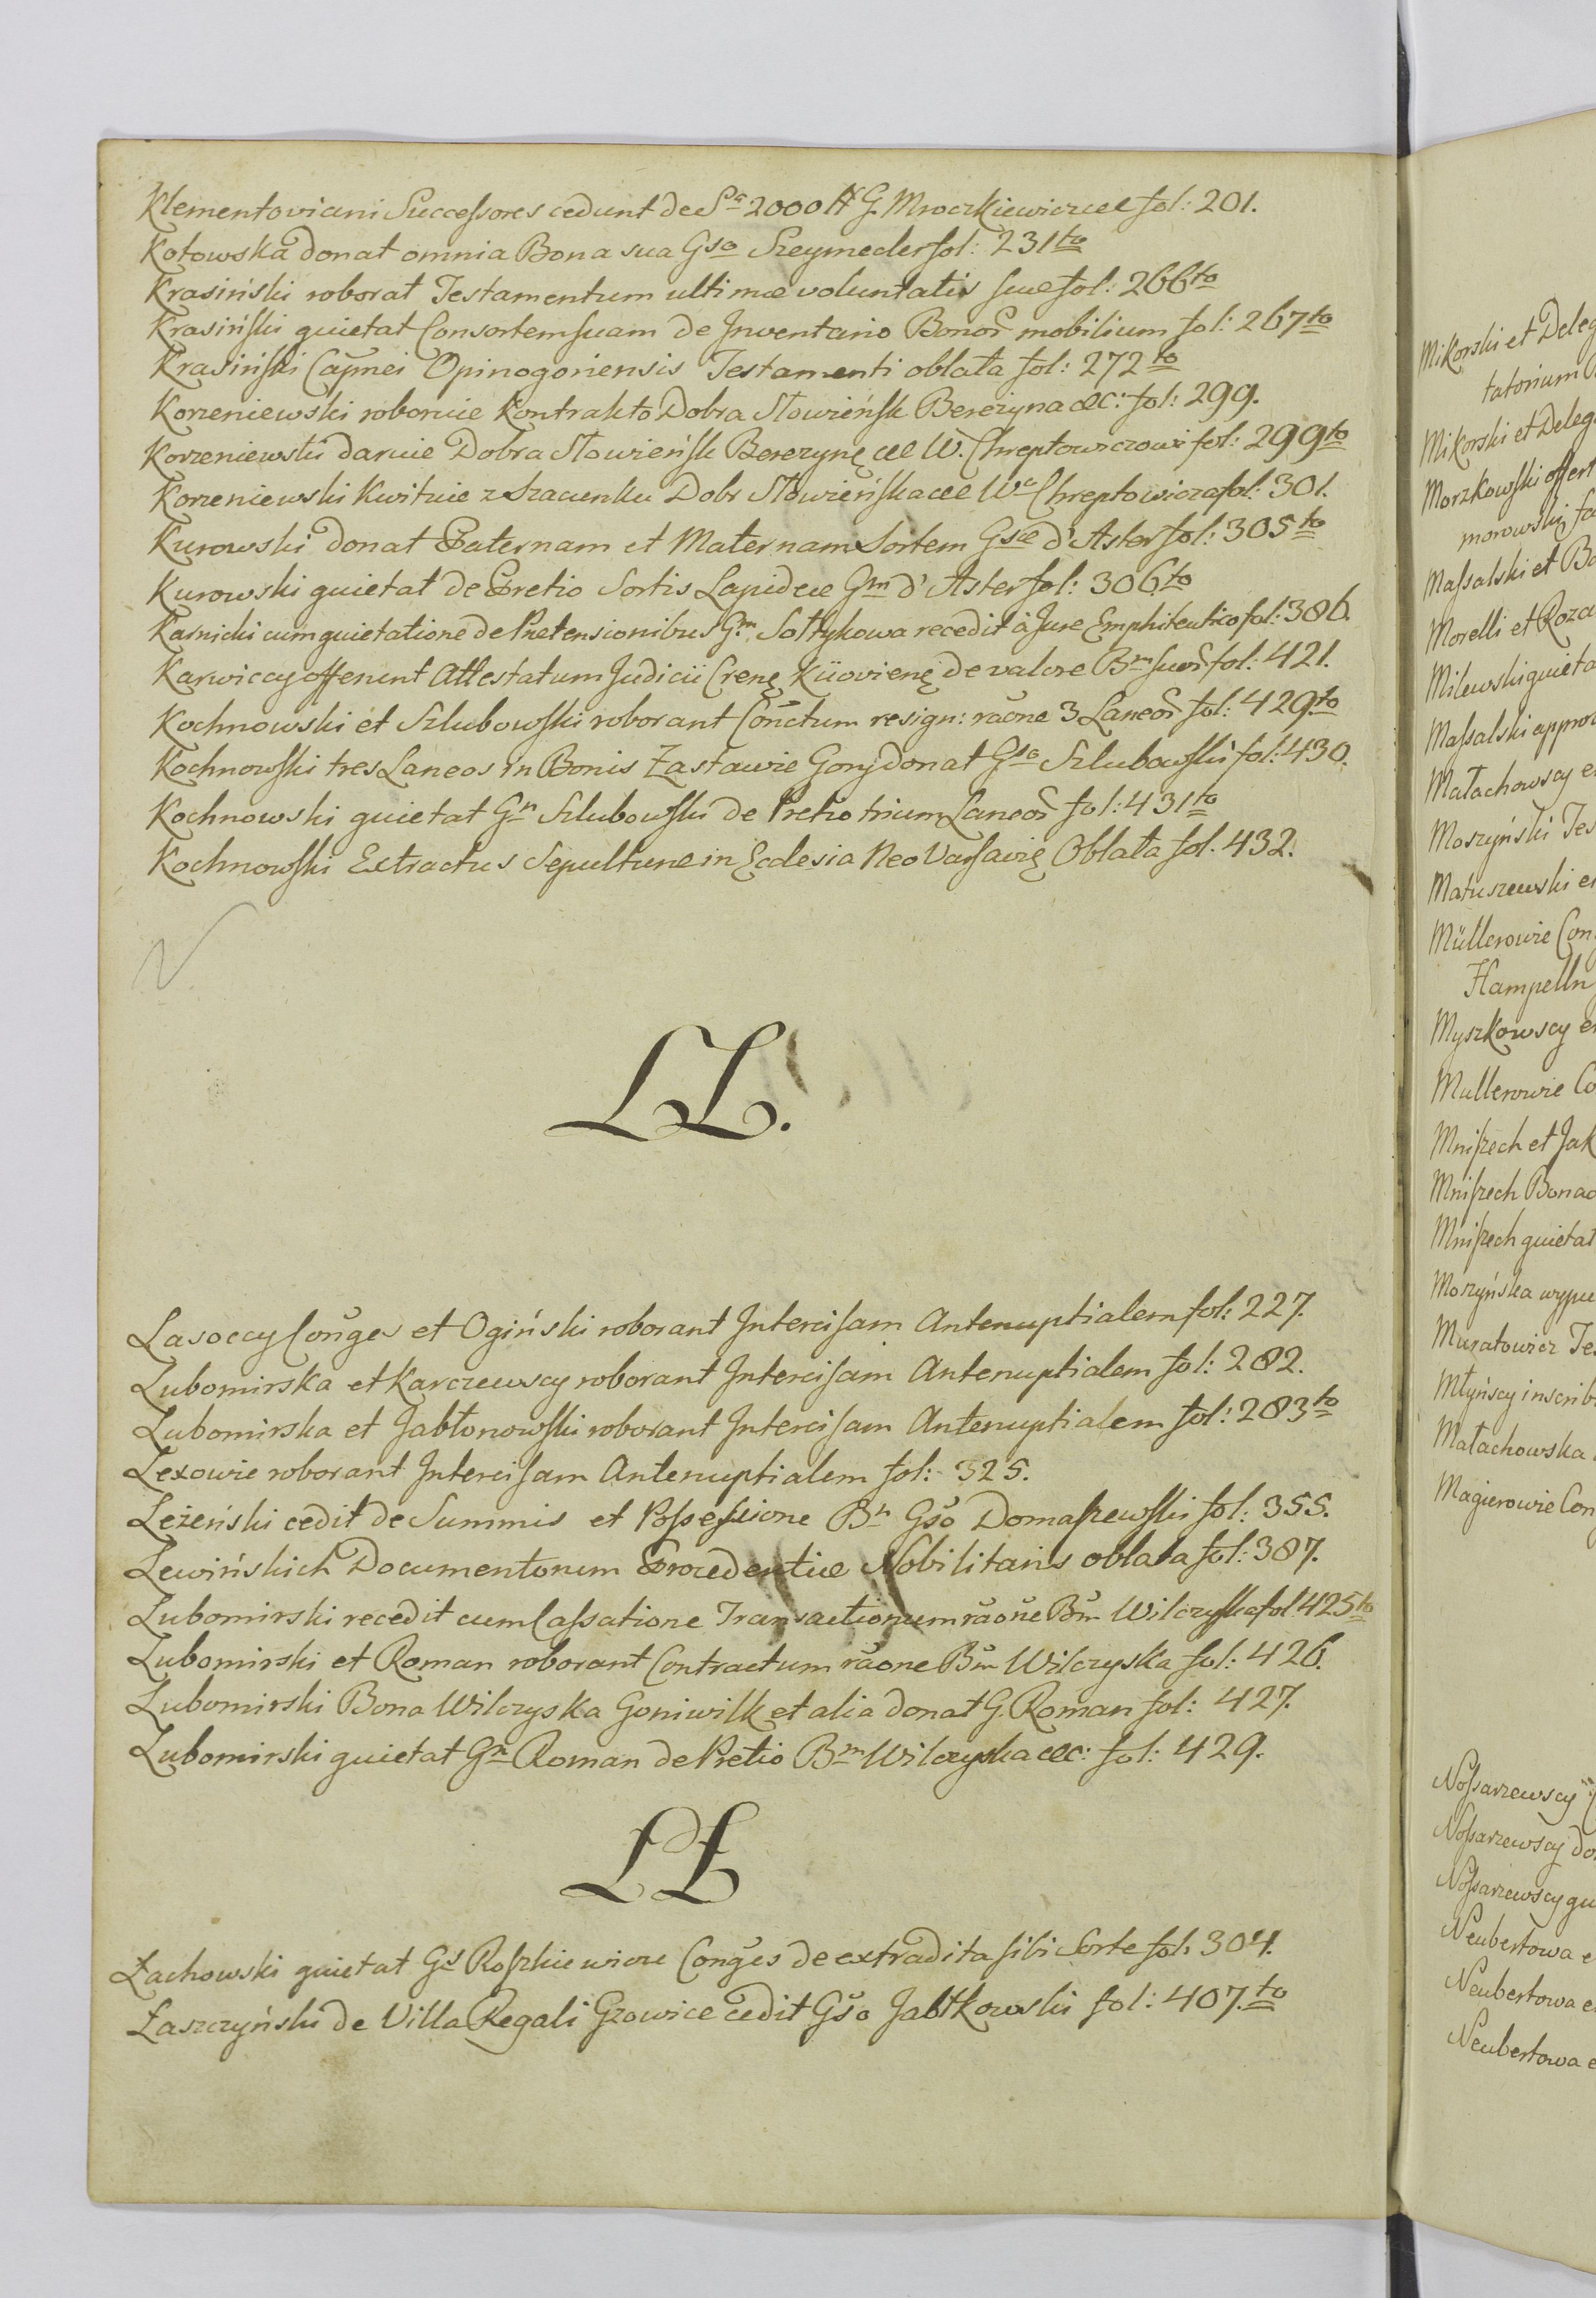 Klementoviani Successores cedunt de Sa 2000 # G. Mroczkiewiczæ fol: 201.
Kotowska donat omnia Bona sua Gso Szeymecler fol: 231to
Krasiński roborat Testamentum ultimæ voluntatis suæ fol: 266to
Krasiński quietat Consortem suam de Inventario Bonor̃ mobilium fol: 267to
Krasiński Capnei Opinogoriensis Testamenti oblata fol: 272to
Korzeniewski roboruie Kontrakt o Dobra Słowieńsk Berezyna &c: fol: 299.
Korzeniewski daruie Dobra Słowieńsk Berezynę &c W. Chreptowiczowi fol: 299to
Korzeniewski Kwituie z Szacunku Dobr Słowieńska &c Wo Chreptowicza fol: 301.
Kurowski donat Paternam et Maternam Sortem Gsæ d'Aster fol: 305to
Kurowski quietat de Pretio Sortis Lapideæ Gm d'Aster fol: 306to
Karnicki cum quietatione de Prætensionibus Gm Sołtykowa recedit à Jure Emphiteutico fol: 386.
Karwiccy offerunt Attestatum Judicii Kiiovienę de valore Bm suor̃ fol: 421.
Kochnowski et Szlubowski roborant Conctum resign: raõne 3 Laneor̃ fol: 429to
Kochnowski tres Laneos in Bonis Zastawie Gory donat Gso Szlubowski fol: 430.
Kochnowski quietat Gn Szlubowski de Pretio trium Laneor̃ fol: 431to
Kochnowski Extractus Sepulturæ in Ecclesia Neo Varsavię Oblata fol. 432.
LL.
Lasoccy Coñges et Ogiński roborant Intercisam Antenuptialem fol: 227.
Lubomirska et Karczewscy roborant Intercisam Antenuptialem fol: 282.
Lubomirska et Jabłonowski roborant Intercisam Antenuptialem fol: 283to
Lexowie roborant Intercisam Antenuptialem fol: 325.
Leżeński cedit de Summis et Possessione Bn Gso Domaszewski fol: 355.
Lewińskich Documentorum Procedentiæ Nobilitaris oblata fol: 387.
Lubomirski recedit cum Cassatione Transactionum raõne Bm Wilczyska fol 425to
Lubomirski et Roman roborant Contractum raõne Bm Wilczyska fol: 426.
Lubomirski Bona Wilczyska Goniwilk et alia donat G. Roman fol: 427.
Lubomirski quietat Gn Roman de Pretio Bm Wilczyska &c: fol: 429.
LŁ
Łachowski quietat Gs Roszkiewicze Conges de extradita sibi Sorte fol: 304.
Łaszczyński de Villa Regali Gzowice cedit Gso Jabłkowski fol: 407to
Mikorski et Deleg
tatorium
Mikorski et Deleg
Morzkowski offert
morowski fa
Massalski et Bo
Morelli et Roza
Milewski quieta
Massalski appro
Małachowscy e
Moszyński Tes
Matuszewski e
Müllerowie Con
Hampelln
Myszkowscy e
Mullerowie Co
Mniszech et Jak
Mniszech Bona
Mniszech quietat
Moszyńska wypu
Muratowicz Tes
Młyńscy inscrib
Małachowska
Magierowie Con
Nossarzewscy
Nossarzewscy do
Nossarzewscy qu
Neubertowa e
Neubertowa e
Neubertowa e